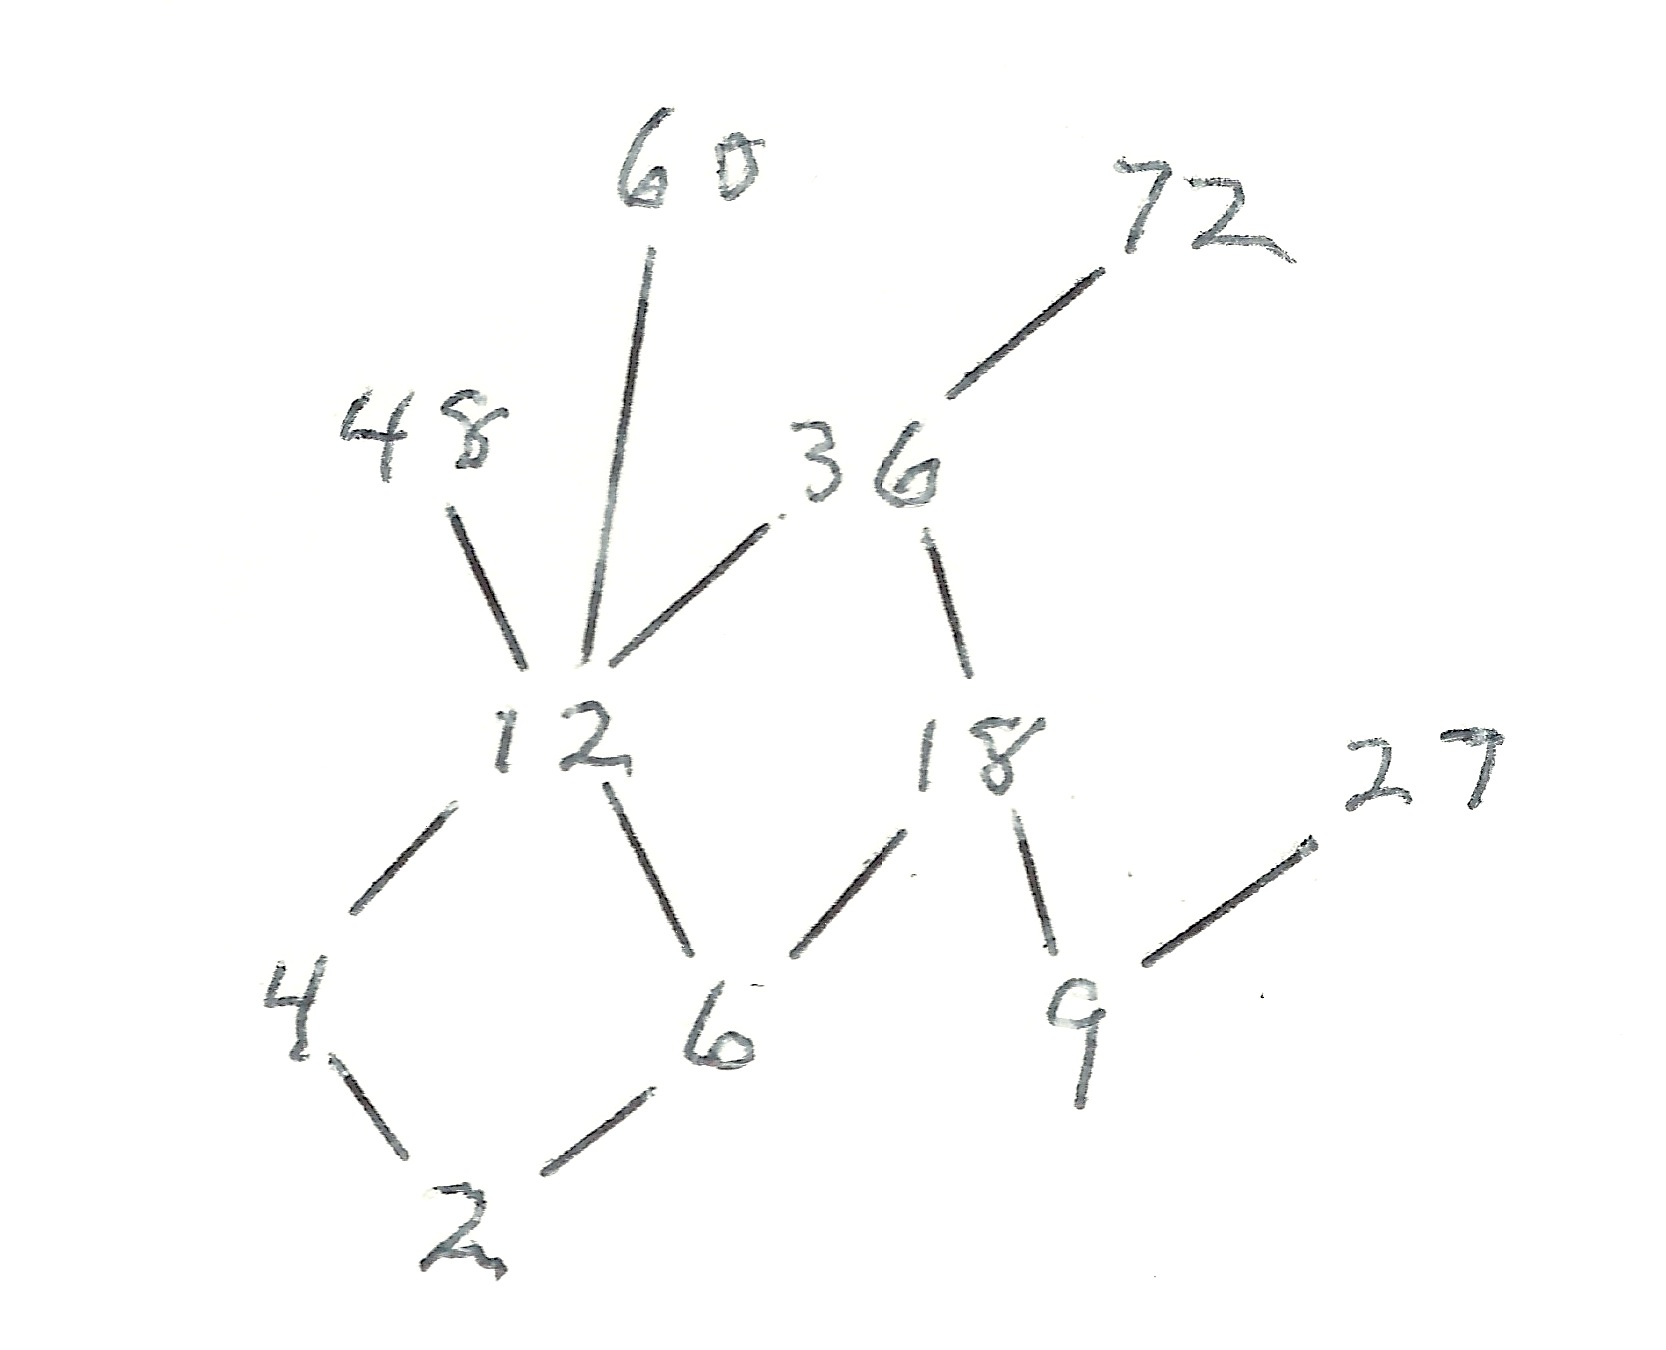 60
72
48
36
12
18
27
4
6
9
2